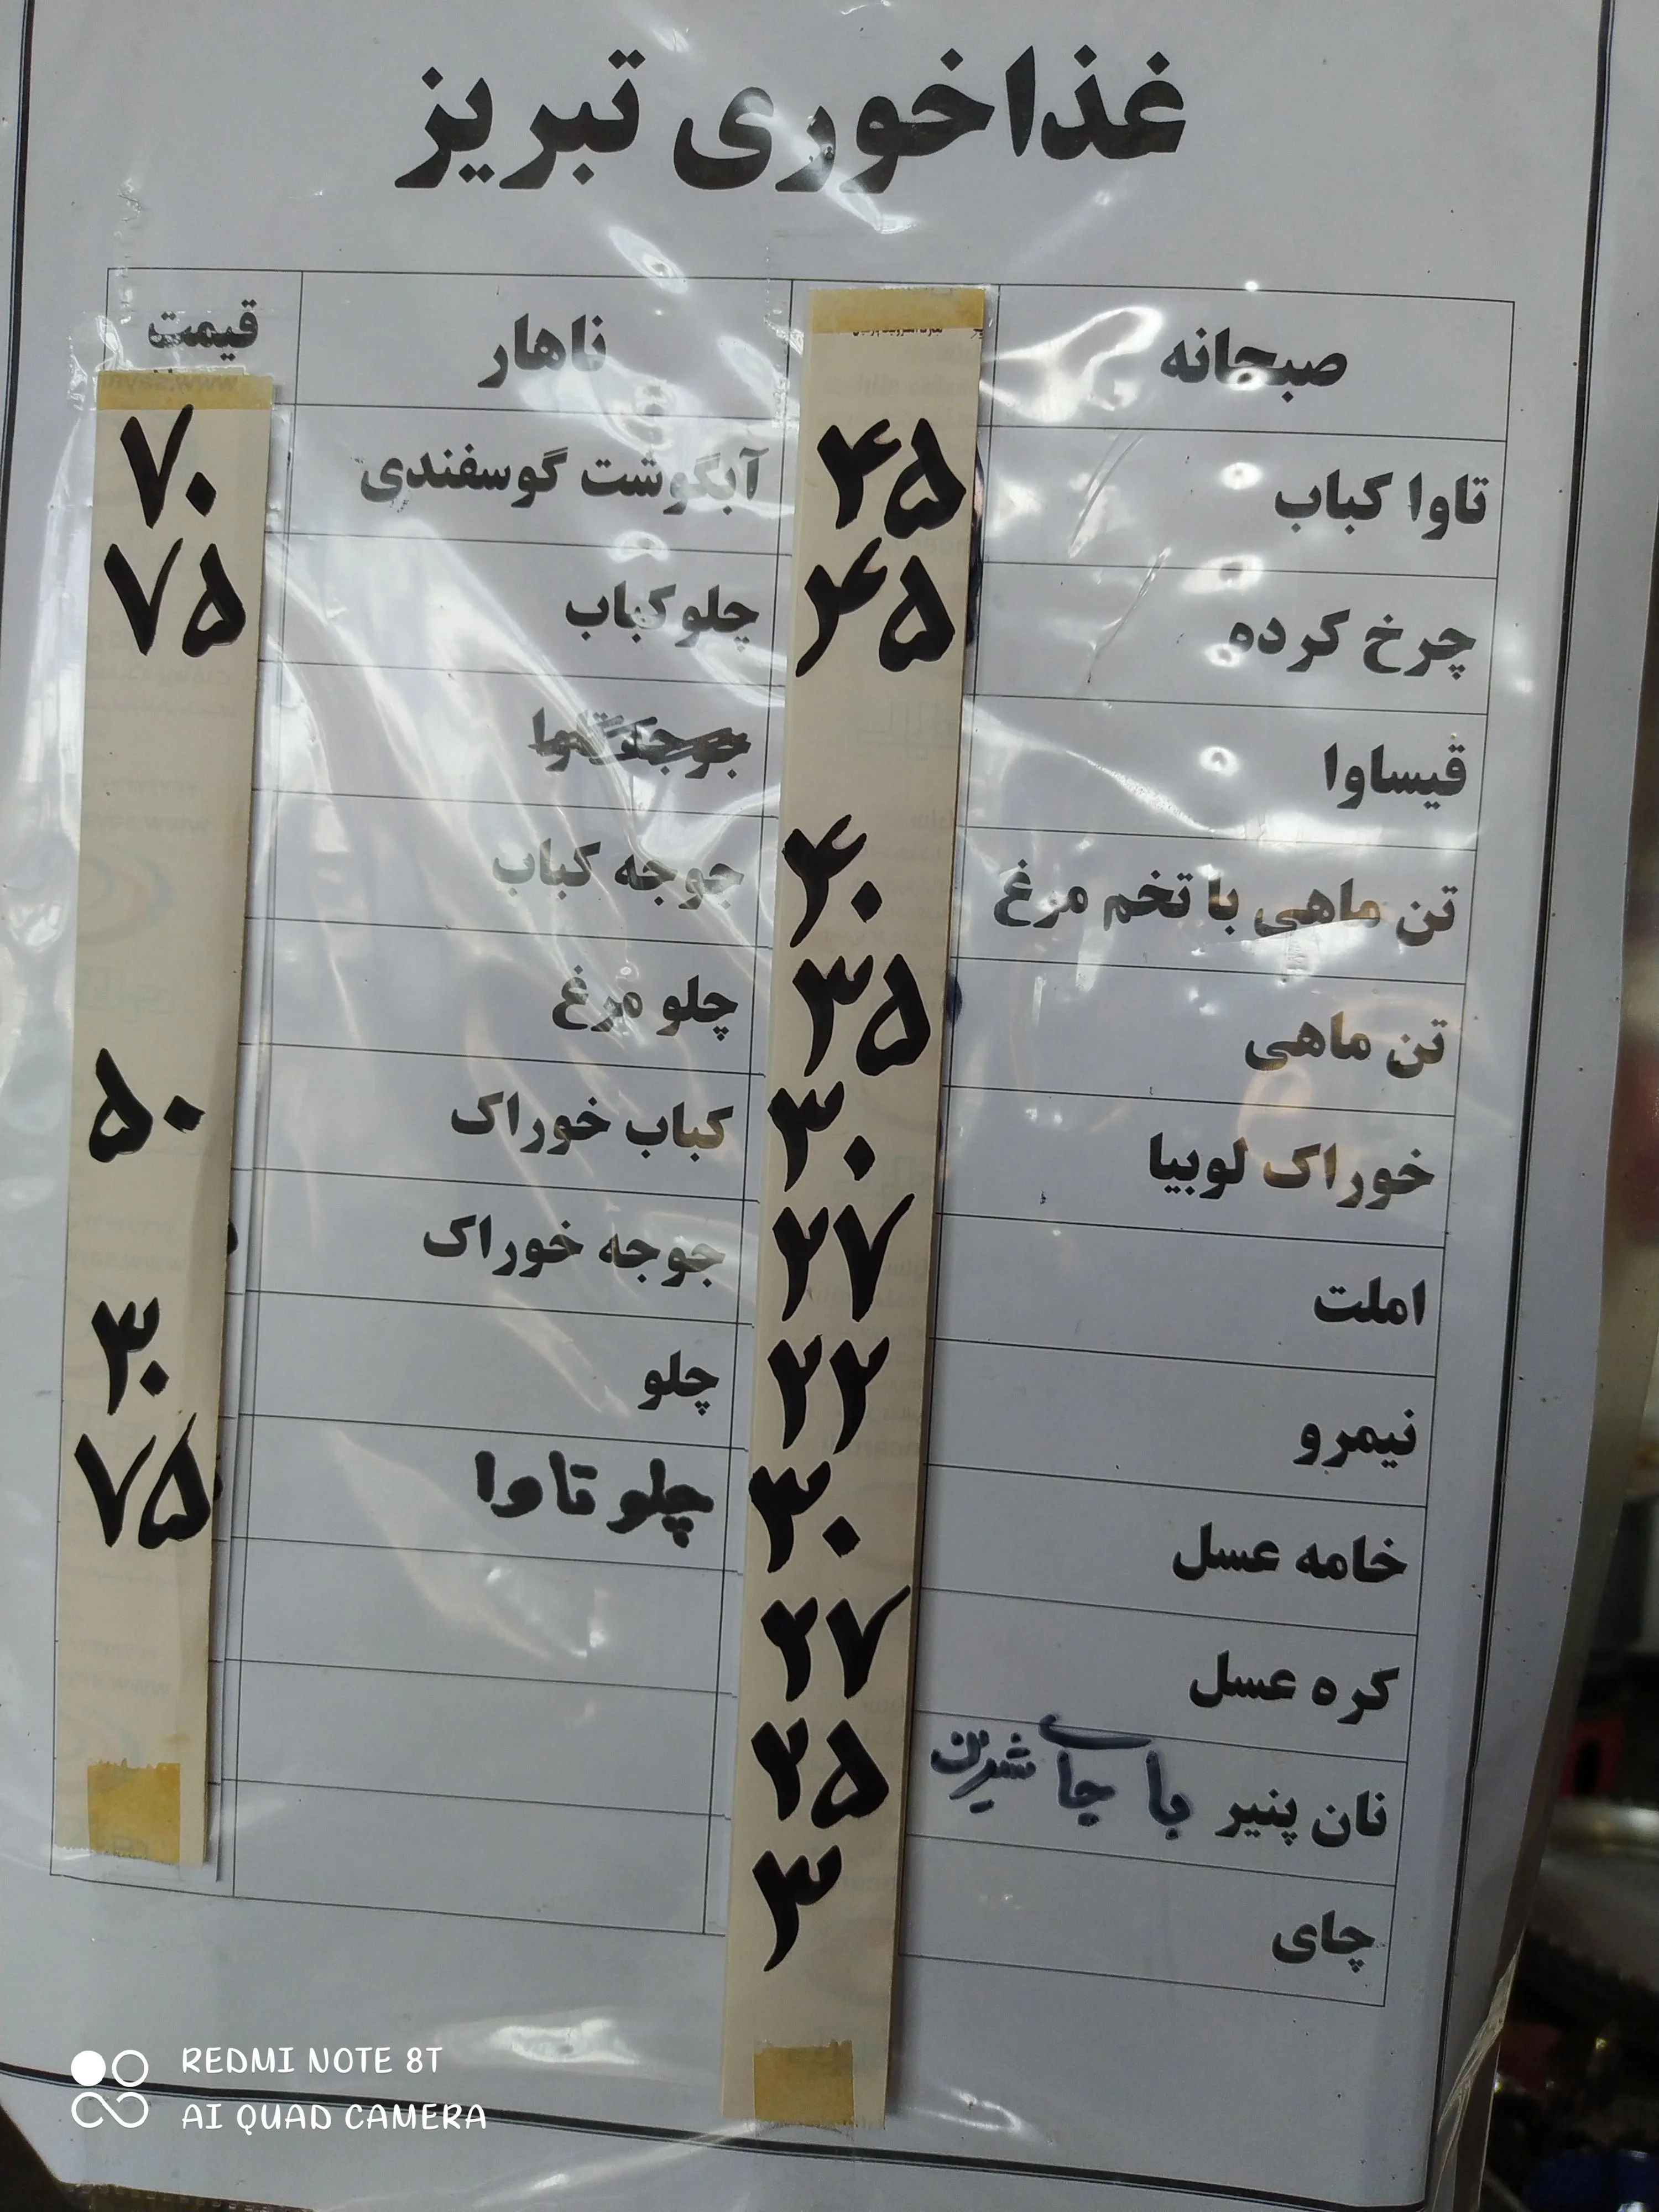 غذاخوری تبریز
صبحانه ناهار قیمت
تاوا کباب ۴۵ آبگوشت گوسفندی ۷۰
چرخ کرده ۴۵ چلوکباب ۷۵
قیساوا جوجه تاوا
تن ماهی با تخم مرغ ۴۰ جوجه کباب
تن ماهی ۳۵ چلو مرغ
خوراک لوبیا ۳۰ کباب خوراک ۵۰
املت ۲۷ جوجه خوراک
نیمرو ۲۲ چلو ۳۰
خامه عسل ۳۰ چلو تاوا ۷۵
کره عسل ۲۷
نان پنیر با چای شیرین ۲۵
چای ۳
REDMI NOTE 8T
AI QUAD CAMERA